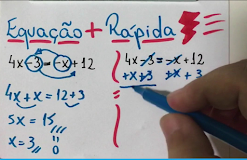 Equação + Rápida
4x - 3 = -x + 12
4x + x = 12 + 3
5x = 15
x = 3
4x - 3 = -x + 12
+x + 3 +x + 3
=